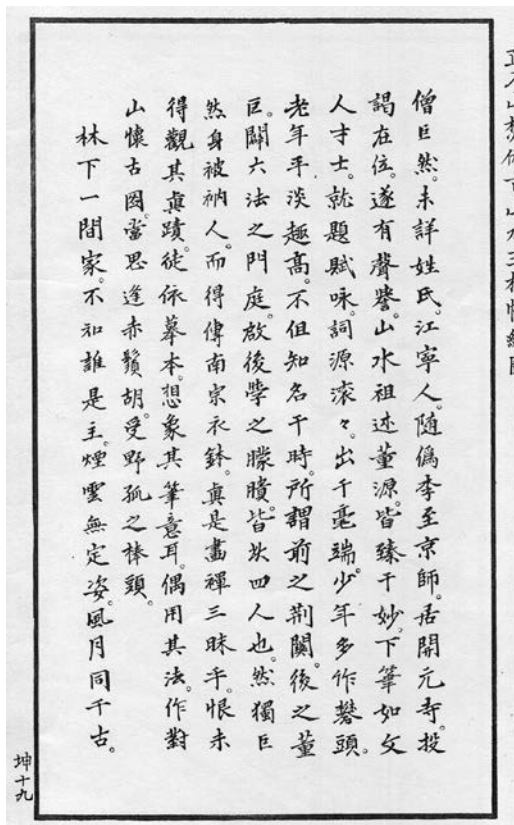 僧巨然。未詳姓氏。江寧人。随僞李至京師。居開元寺。投
謁在位。遂有聲譽。山水祖述董源。皆臻于妙。下筆如文
人才士。就題賦咏。詞源滚々。出于毫端。少年多作礬頭。
老年平淡趣高。不但知名于時。所謂前之荆關。後之董
巨。闢六法之門庭。啟後學之矇瞶。皆此四人也。然獨巨
然身被衲人。而得傳南宗衣鉢。眞是畫禪三昧乎。恨未
得觀其眞蹟。徒依摹本。想象其筆意耳。偶用其法。作對
山懷古圖。當思逢赤鬚胡。受野狐之棒頭。
林下一間家。不知誰是主。煙雲無定姿。風月同千古。
坤十九